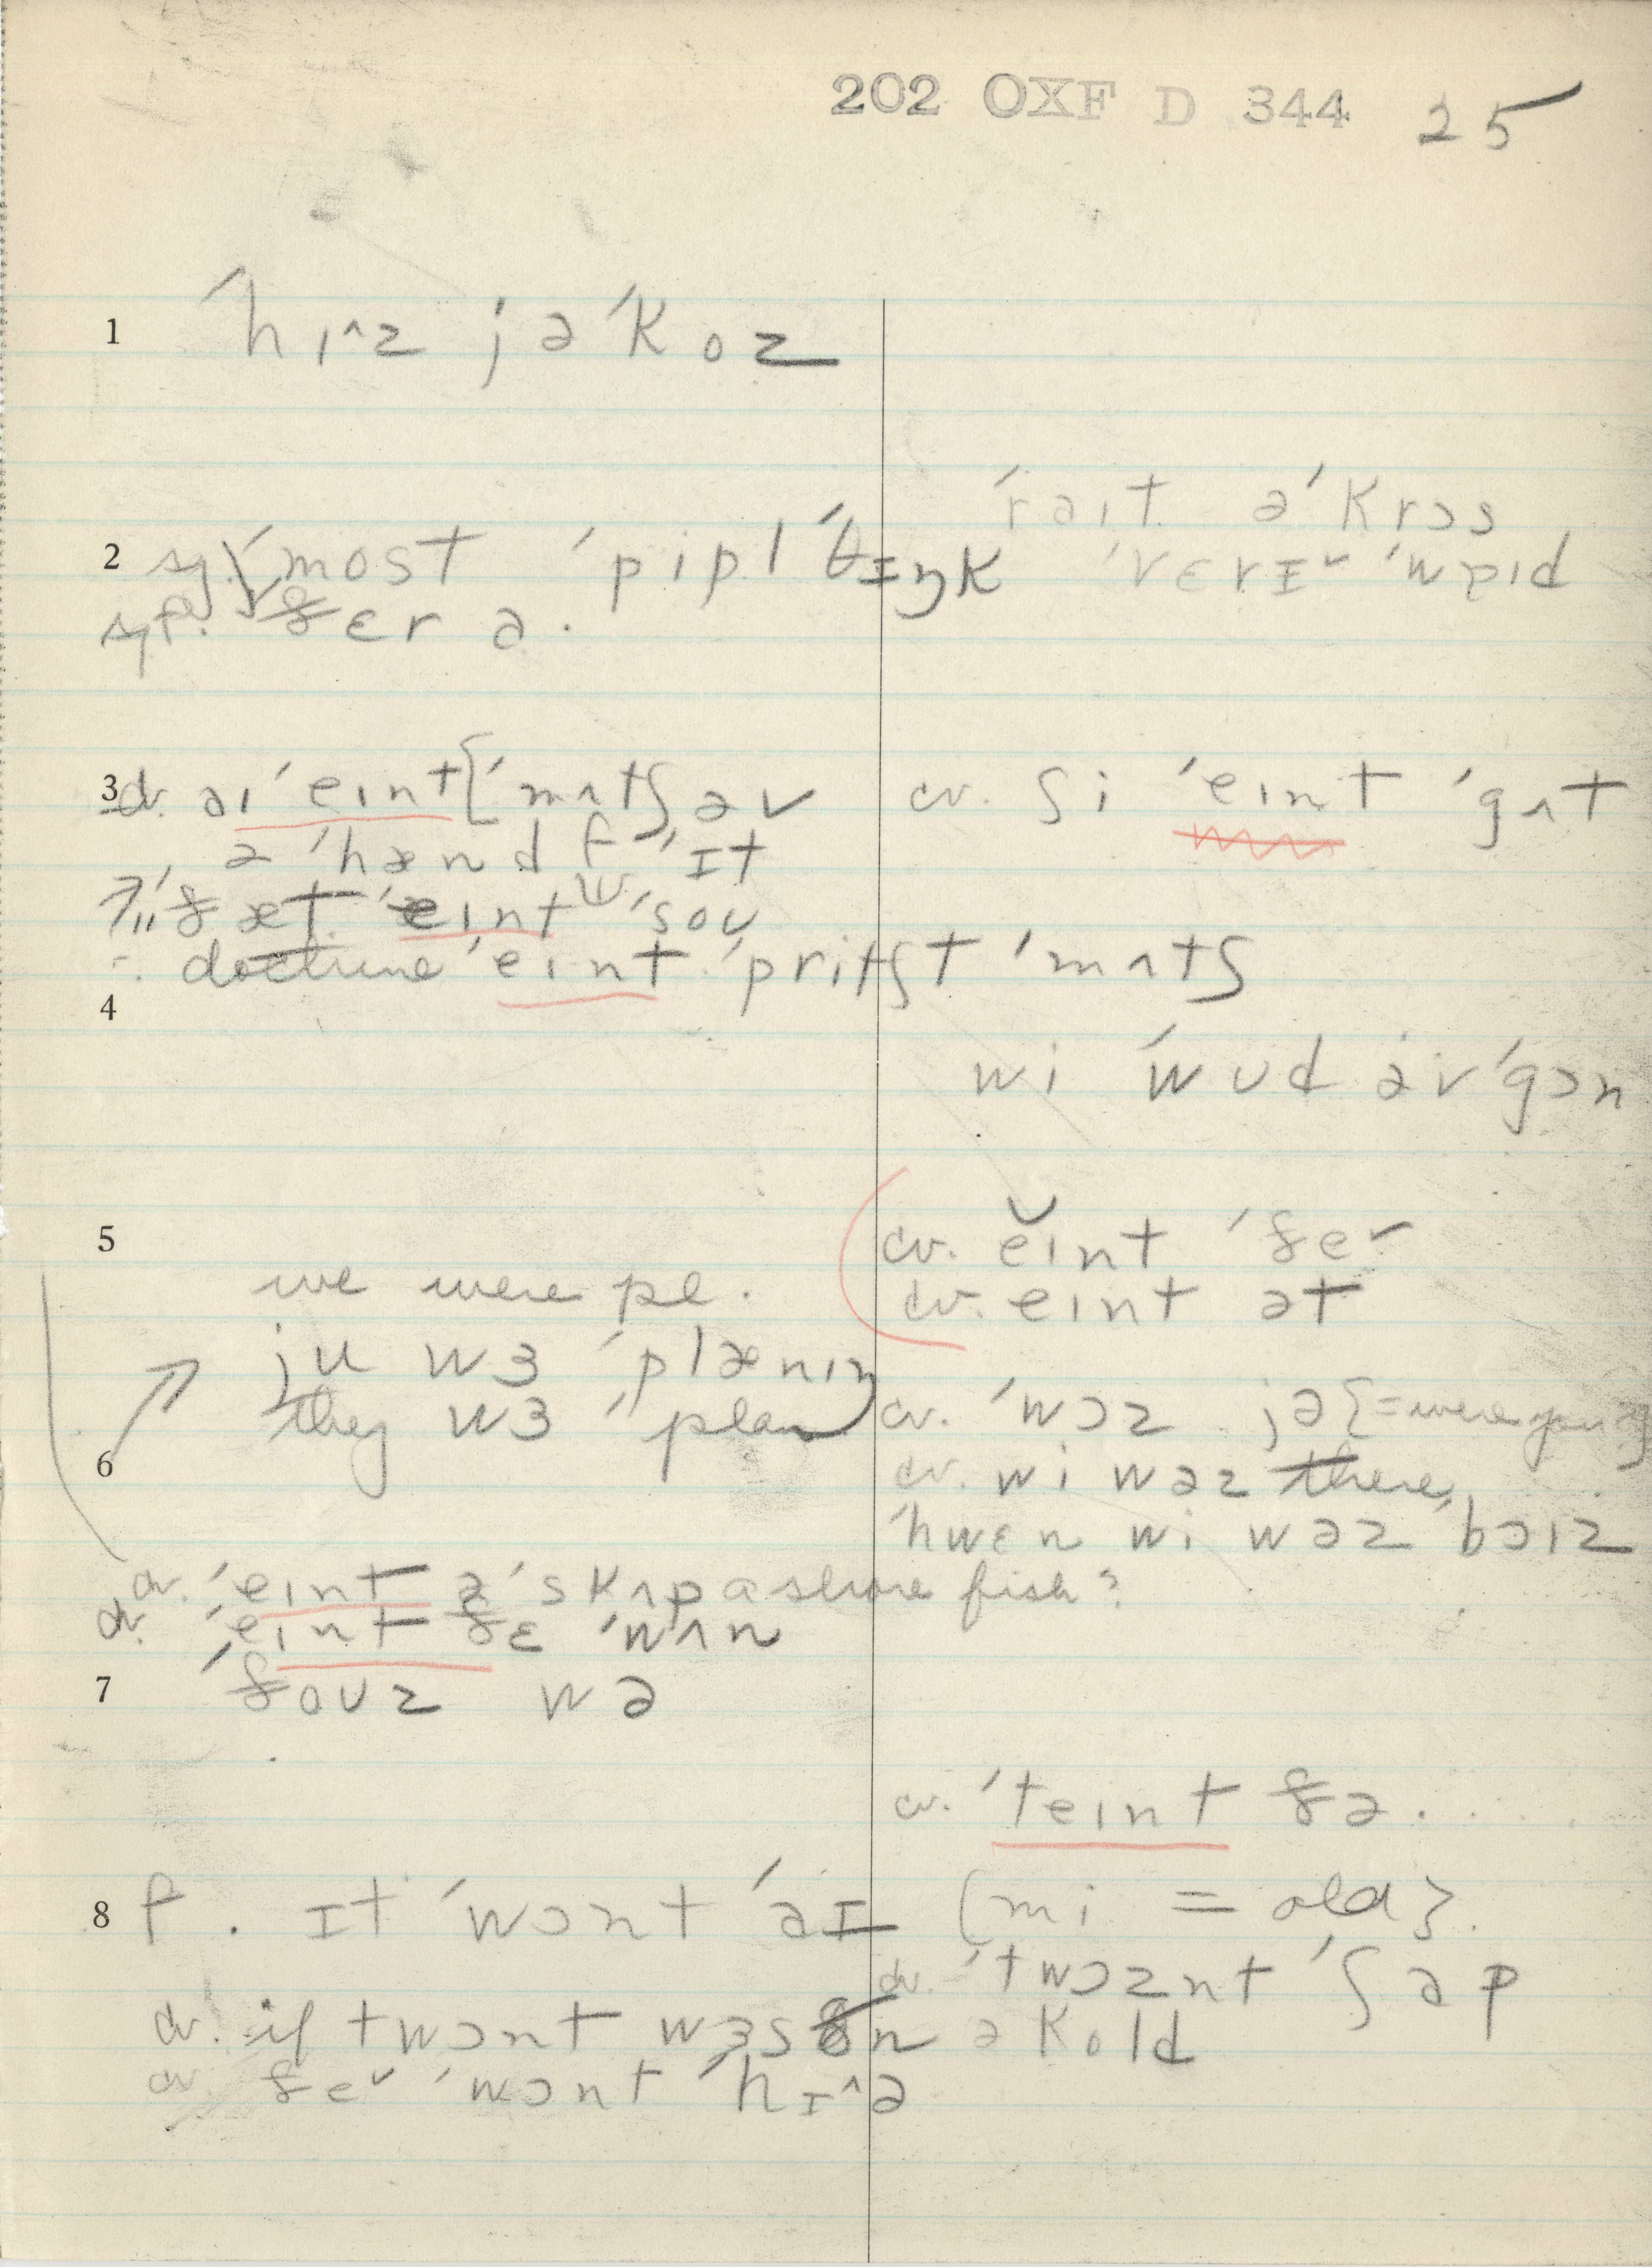 202 OXF D 344 25
1 ˈhɪ^z jəˈkoz
ˈraɪt əˈkrɔs
2 sy. ˈmost ˈpipl ˈθɪŋk ˈvɛrɪ˅ ˈwɒɪd
syf. ðɛr ə.
3 cv. aɪ ˈeɪnt {ˈmʌtʃ əv cv. ʃi ˈeɪnt ˈgʌt
ə ˈhænd f ˈɪt
ˈðæt ˈeɪnt ˈsoʊ
doctrine ˈeɪnt ˈpritʃt ˈmʌtʃ
4
wi ˈwʊd əv ˈgɔn
5 cv. ĕɪnt ˈðe˅
we were pl. cv. eɪnt ət
ju wɜ ˈplænɪŋ
they wɜ ˈplan cv. ˈwɔz jə {=were you}
6 cv. wi wəz there,
ˈhwɛn wi wəz ˈbɔɪz
cv. ˈeɪnt ə ˈskʌp a shore fish?
cv. ˈeɪnt ðɛ ˈwʌn
7 ˈðoʊz wə
cv. ˈteɪnt ðə....
8 f. ɪt ˈwɔnt ˈaɪ {mi = old}.
cv. ˈtwɔznt ˈʃəp
cv. if twɔnt wɜs ðn ə kold
cv. ðe˅ ˈwɔnt ˈhɪ^ə